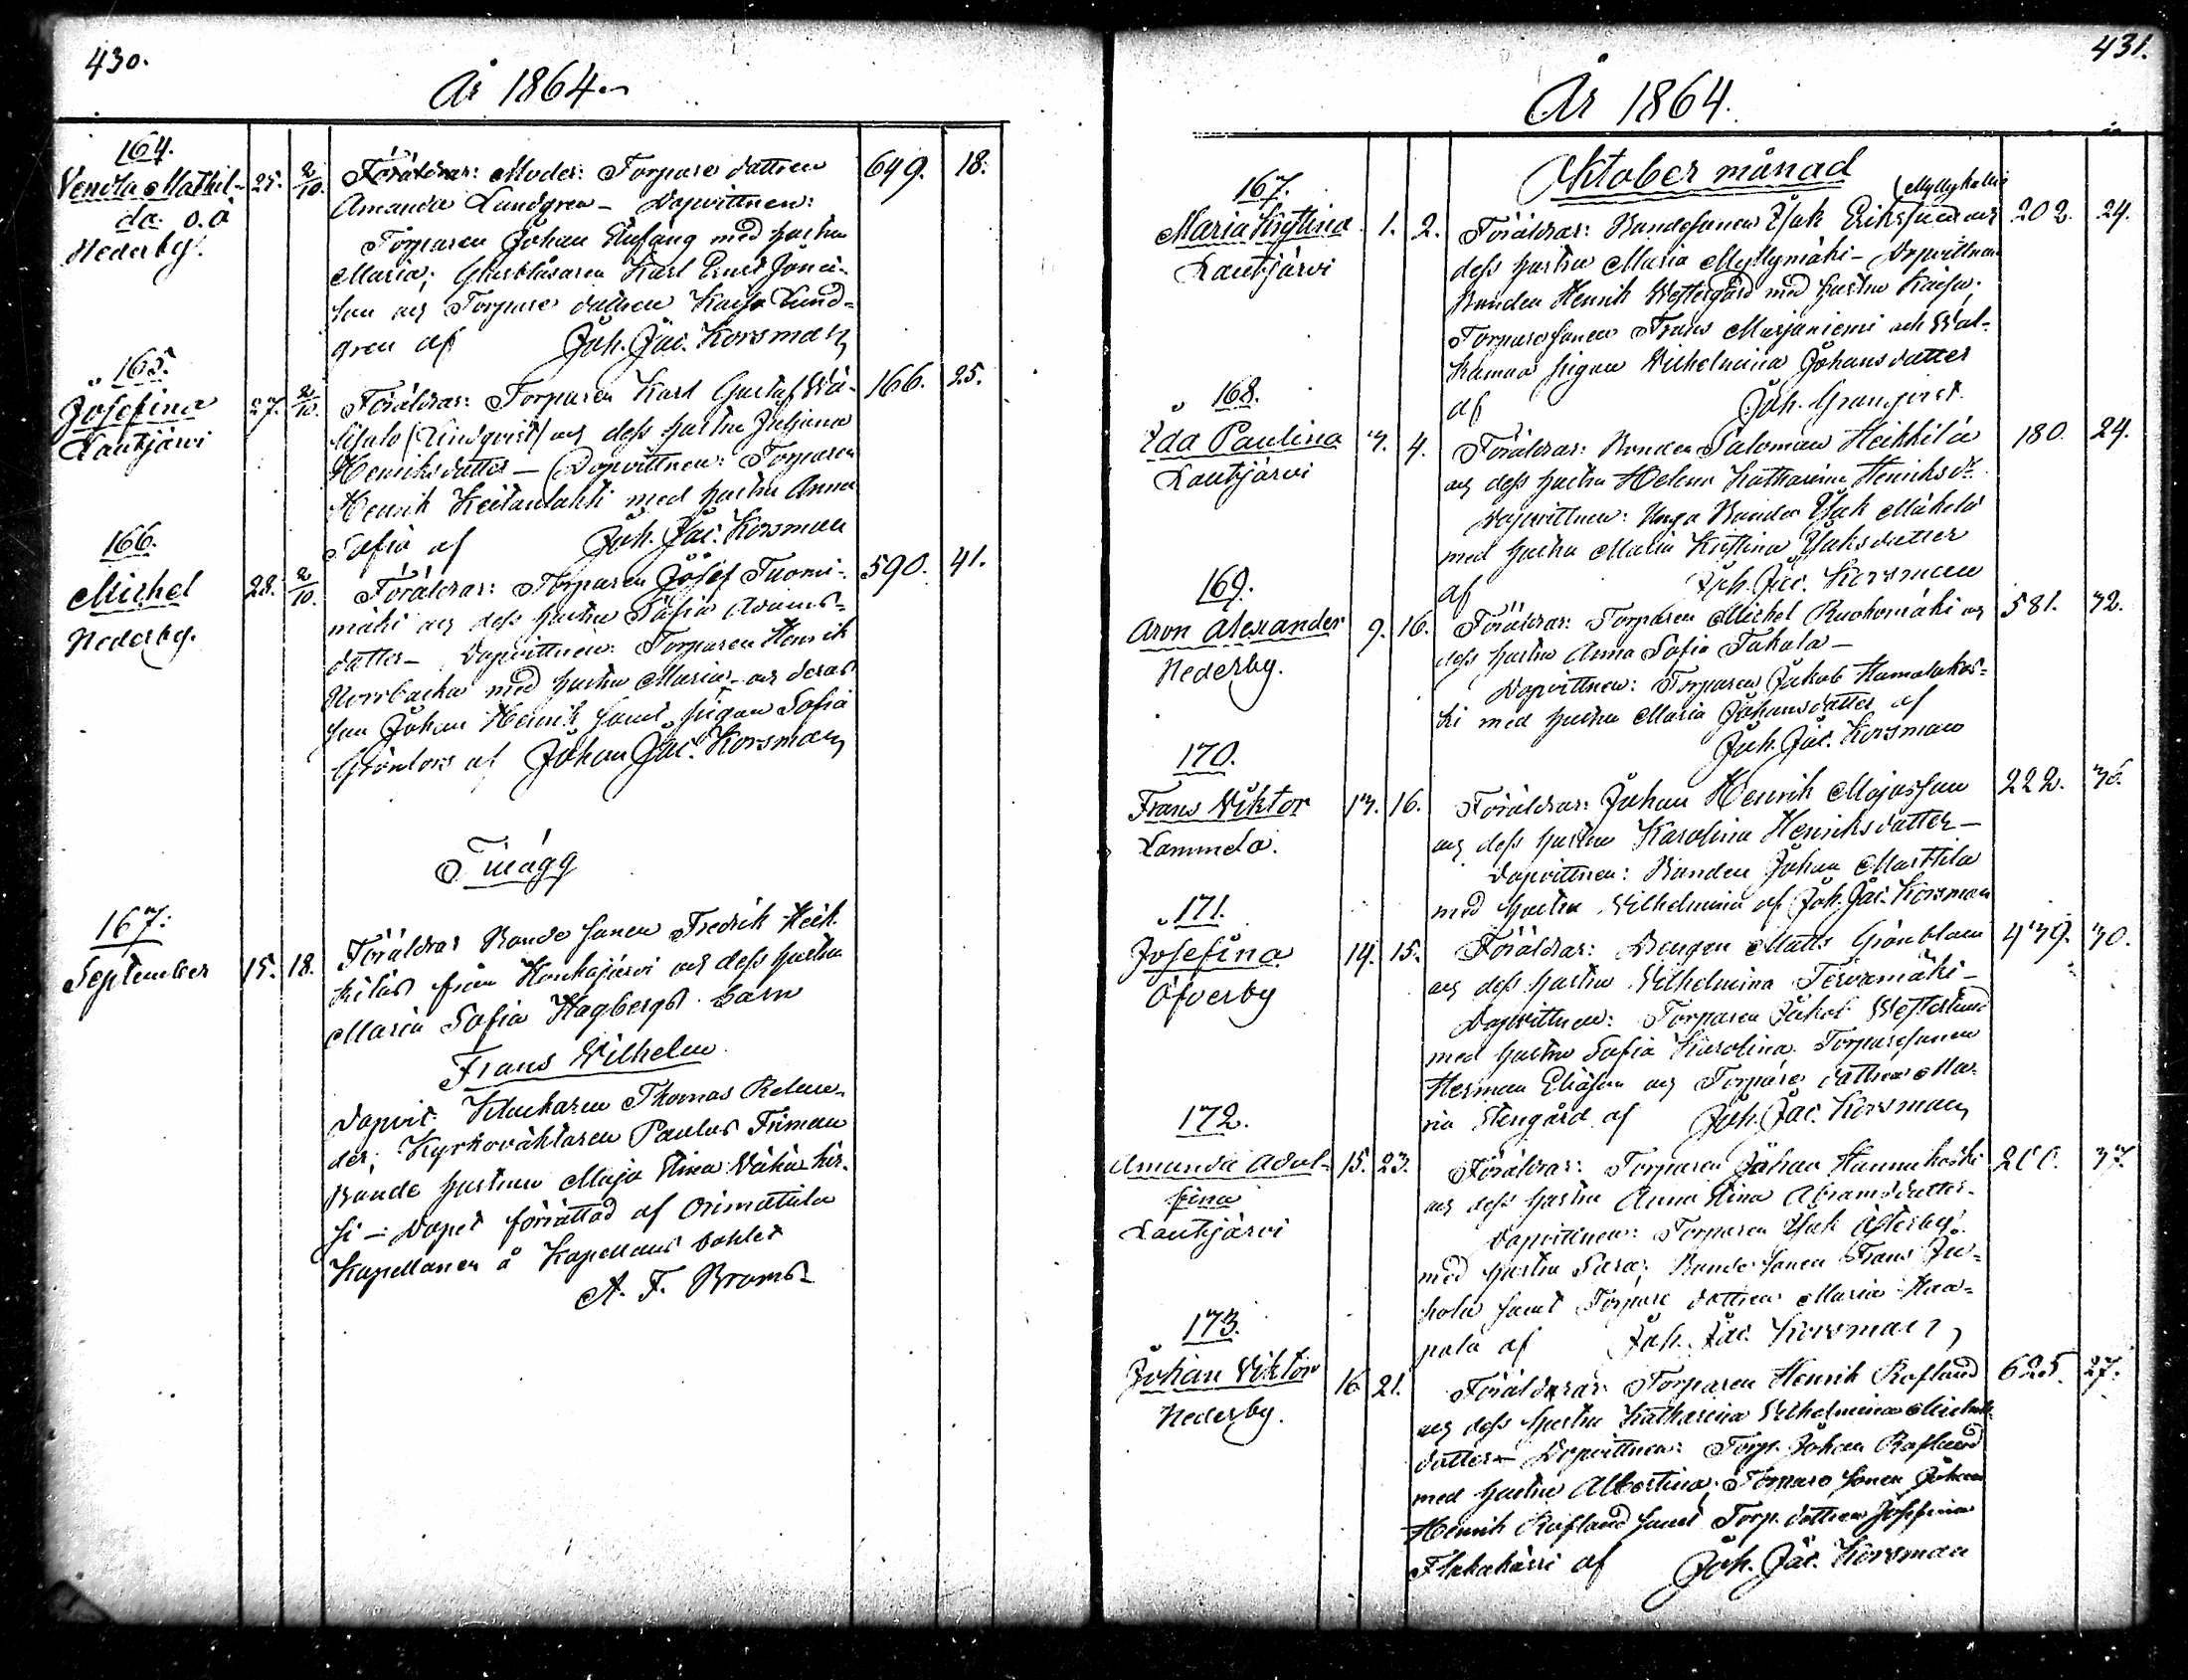 430.
År 1864.
164.
Vendla Mathil-
da. o.ä
Nederby.
25. 2/10. Föräldrar: Moder: Torpare dattren 649. 18.
Amanda Lundgren - Dopvittnen:
Torparen Johan Stufäng med hustru
Maria; Glasblåsaren Karl Ernst Jona-
son och Torpare dattren Kajsa Lund-
gren af Joh. Jac. Korsman
165.
Josefina
Lautjärvi
27. 2/10. Föräldrar: Torparen Karl Gustaf Wä- 166. 25.
(Lindqvist) och dess hustru Juliana
Henriksdatter - Dopvittnen: Torparen
Henrik Keitanlahti med hustru Anna
Sofia af Joh. Jac. Korsman
166.
Michel
Nederby.
28. 2/10. Föräldrar: Torparen Josef Tuomi- 590. 41.
mäki och dess hustru Sofia Adams-
datter - Dopvittnen: Torparen Henrik
Norrbacka med hustru Maria och deras
son Johan Henrik samt pigan Sofia
Grönlors af Johan Jac. Korsman
Tillägg
167.
September
15. 18. Föräldrar Bonde sonen Fredrik Heik-
kiläs från Honkajärvi och dess hustru
Maria Sofia Hagbergs barn
Frans Wilhelm
Dopvit. Klockaren Thomas Relan-
der; Kyrkovaktaren Paulus Friman
Bonde hustrun Maja Stina Vähä-kir-
si - Dopet förrättad af Orimattila
Kapellanen å Kapellans bohlet
A. F. Broms
431.
År 1864.
Oktober månad
167.
Maria Kristina
Lautjärvi
(Myllykellis
1. 2. Föräldrar: Bondesonen Isak Eriksson och 202. 24.
dess hustru Maria Myllymäki - Dopvittnen
Bonden Henrik Westergård med hustru Kaisa.
Torparesonen Frans Marjaniemi och Wal-
kamaa pigan Wilhelmina Johansdatter
af Joh. Granqvist.
168.
Ida Paulina
Lautjärvi
3. 4. Föräldrar: Bonden Salomon Heikkilä 180. 24.
och dess hustru Helena Katharina Henriksdr.
Dopvittnen: Unga Bonden Isak Mäkelä
med hustru Maria Kristina Isaksdatter
af Joh. Jac. Korsman
169.
Aron Alexander
Nederby.
9. 16. Föräldrar: Torparen Michel Ruohomäki och 581. 32.
dess hustru Anna Sofia Takala -
Dopvittnen: Torparen Jakob Hamalakos-
ki med hustru Maria Johansdatter af
Joh. Jac. Korsman
170.
Frans Viktor
Lammela.
13. 16. Föräldrar: Johan Henrik Majasson 222. 36.
och dess hustru Karolina Henriksdatter -
Dopvittnen: Bonden Johan Marttila
med hustru Wilhelmina af Joh. Jac. Korsman
171.
Josefina
Öfverby
14. 15. Föräldrar: Drengen Matts Grönblom 439. 30.
och dess hustru Wilhelmina Tervamäki -
Dopvittnen: Torparen Jakob Westerlund
med hustru Sofia Karolina. Torparesonen
Herman Eliasson och Torpare dattren Ma-
ria Stengård af Joh. Jac. Korsman
172.
Amanda Adol-
fina
Lautjärvi
15. 23. Föräldrar: Torparen Johan Hannukoski 200. 37.
och dess hustru Anna Stina Abramsdatter.
Dopvittnen: Torparen Isak Österby
med hustru Sara; Bonde sonen Frans Ju-
hola samt Torpare dattren Maria Haa-
pala af Joh. Jac. Korsman
173.
Johan Viktor
Nederby.
16. 21. Föräldrar: Torparen Henrik Rosland 625. 27.
och dess hustru Katharina Wilhelmina Michels-
datter - Dopvittnen: Torp. Johan Rosland
med hustru Albertina; Torpare sonen Johan
Henrik Rosland samt Torp. dattren Josefina
af Joh. Jac. Korsman